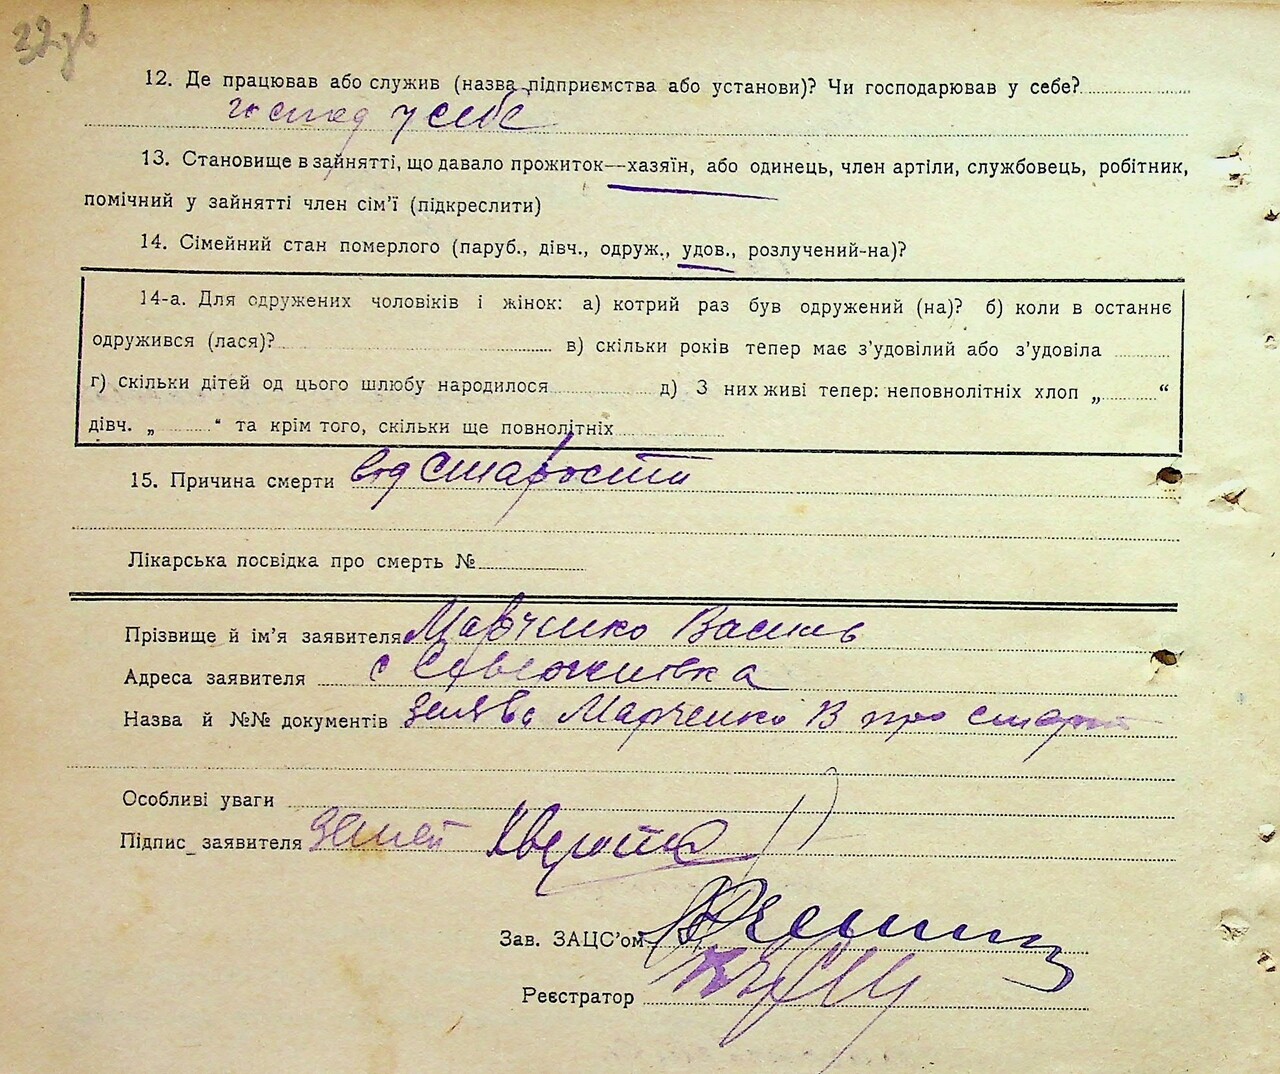 32 зв
12. Де працював або служив (назва підприємства або установи)? Чи господарював у себе?
господ у себе
13. Становище в зайнятті, що давало прожиток—хазяїн, або одинець, член артіли, службовець, робітник,
помічний у зайнятті член сім'ї (підкреслити)
14. Сімейний стан померлого (паруб., дівч., одруж., удов., розлучений-на)?
14-а. Для одружених чоловіків і жінок: а) котрий раз був одружений (на)? б) коли в останнє
одружився (лася)? в) скільки років тепер має з'удовілий або з'удовіла
г) скільки дітей од цього шлюбу народилося д) З них живі тепер: неповнолітніх хлоп „ “
дівч. „ “ та крім того, скільки ще повнолітніх
15. Причина смерти від старости
Лікарська посвідка про смерть №
Прізвище й ім'я заявителя Марченко Василь
Адреса заявителя с
Назва й №№ документів заява Марченко В про смерт
Особливі уваги
Підпис заявителя
Зав. ЗАЦС'ом
Реєстратор